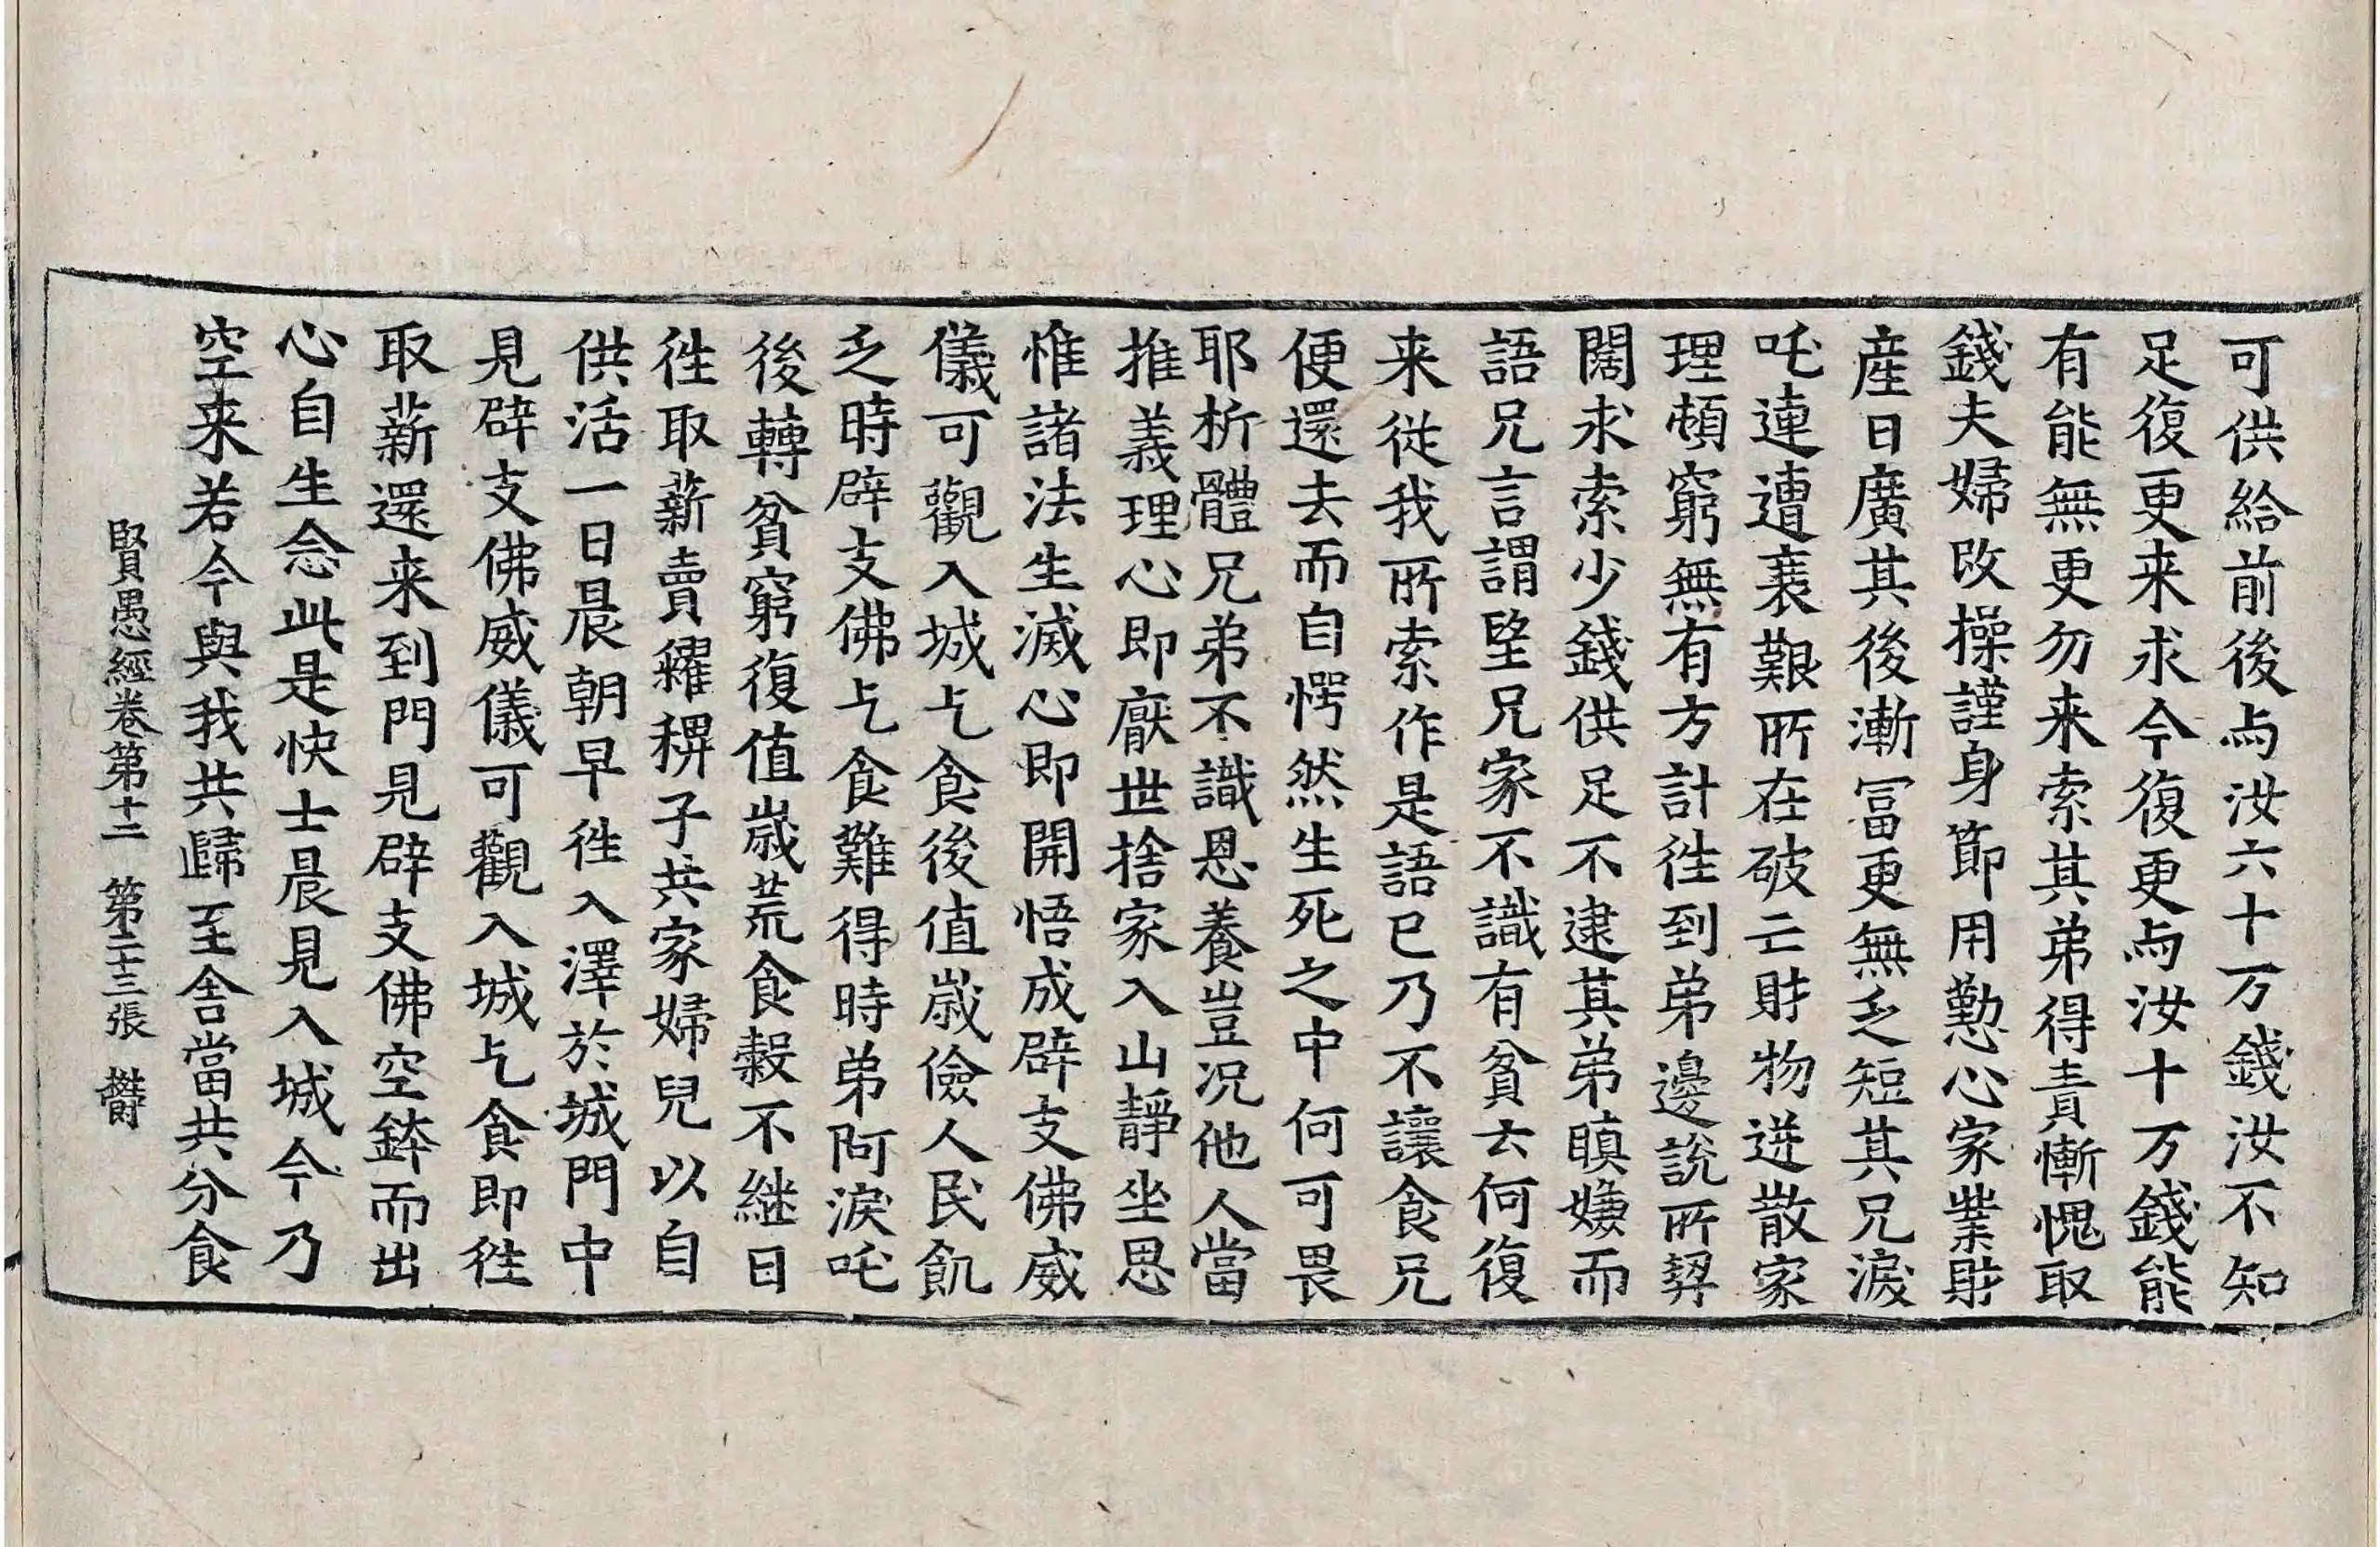 可供給前後与汝六十万錢汝不知
足復更来求今復更与汝十万錢能
有能無更勿来索其弟得責慚愧取
錢夫婦改操謹身節用懃心家業財
産日廣其後漸冨更無乏短其兄淚
吒連遭衰艱所在破亡財物迸散家
理頓窮無有方計徃到弟邊說所契
闊求索少錢供足不逮其弟瞋嫌而
語兄言謂望兄家不識有貧云何復
来從我所索作是語已乃不讓食兄
便還去而自愕然生死之中何可畏
耶析體兄弟不識恩養豈况他人當
推義理心即厭世捨家入山靜坐思
惟諸法生滅心即開悟成辟支佛威
儀可觀入城乞食後值歲儉人民飢
乏時辟支佛乞食難得時弟阿淚吒
後轉貧窮復值歲荒食穀不継日
徃取薪賣糴稗子共家婦兒以自
供活一日晨朝早徃入澤於城門中
見辟支佛威儀可觀入城乞食即徃
取薪還来到門見辟支佛空鉢而出
心自生念此是快士晨見入城今乃
空来若今與我共歸至舍當共分食
賢愚經卷第十二 第二十三張 欝